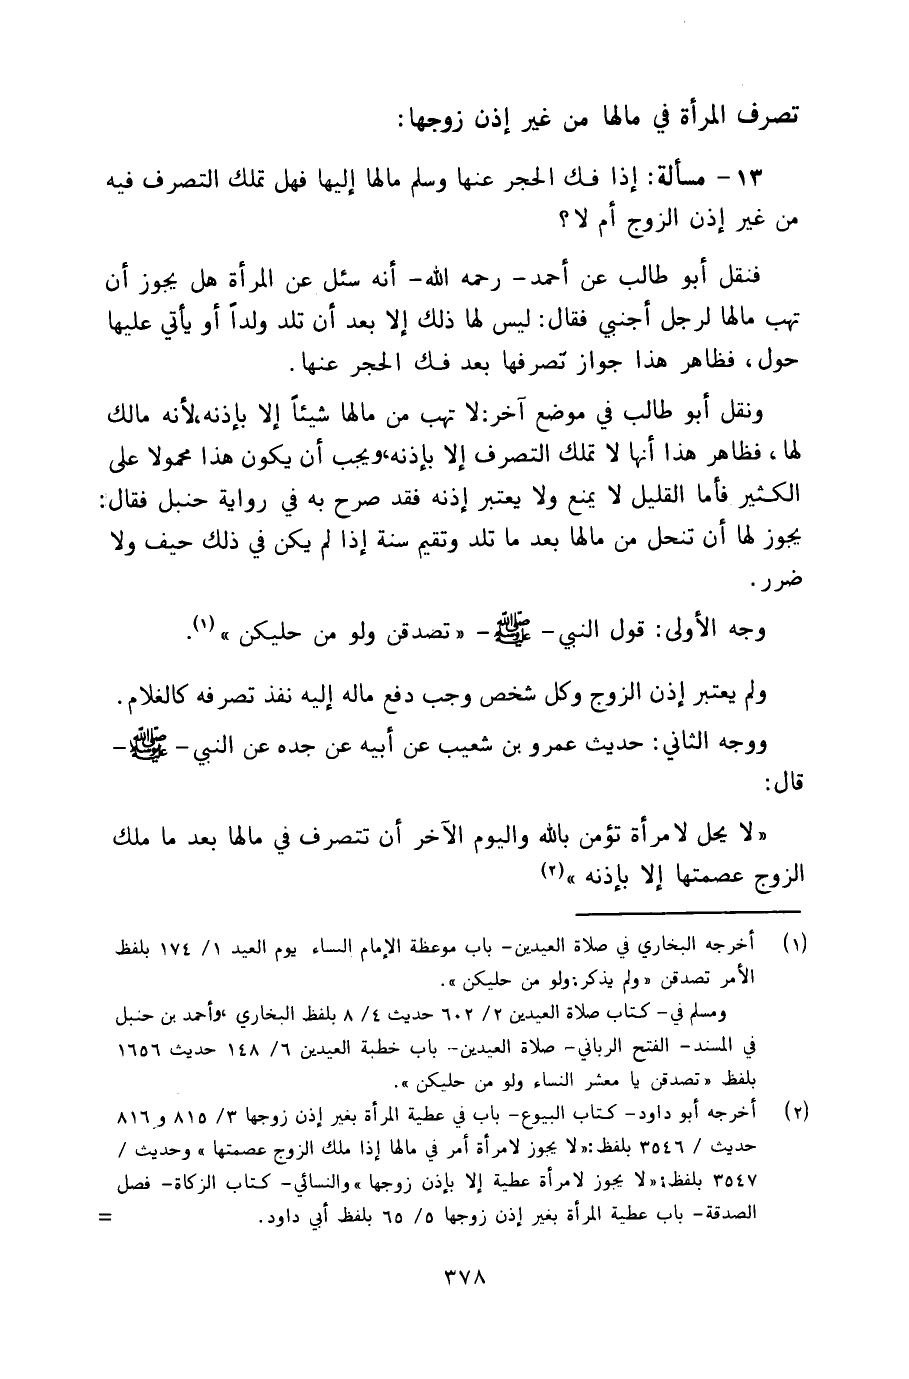 تصرف المرأة في مالها من غير إذن زوجها:
١٣ - مسألة: إذا فك الحجر عنها وسلم مالها إليها فهل تملك التصرف فيه
من غير إذن الزوج أم لا؟
فنقل أبو طالب عن أحمد- رحمه الله- أنه سئل عن المرأة هل يجوز أن
تهب مالها لرجل أجنبي فقال: ليس لها ذلك إلا بعد أن تلد ولداً أو يأتي عليها
حول، فظاهر هذا جواز تصرفها بعد فك الحجر عنها.
ونقل أبو طالب في موضع آخر:لا تهب من مالها شيئاً إلا بإذنه،لأنه مالك
لها، فظاهر هذا أنها لا تملك التصرف إلا بإذنه،ويجب أن يكون هذا محمولا على
الكثير فأما القليل لا يمنع ولا يعتبر إذنه فقد صرح به في رواية حنبل فقال:
يجوز لها أن تنحل من مالها بعد ما تلد وتقيم سنة إذا لم يكن في ذلك حيف ولا
ضرر.
وجه الأولى: قول النبي- ﷺ- «تصدقن ولو من حليكن»(١).
ولم يعتبر إذن الزوج وكل شخص وجب دفع ماله إليه نفذ تصرفه كالغلام.
ووجه الثاني: حديث عمرو بن شعيب عن أبيه عن جده عن النبي- ﷺ-
قال:
«لا يحل لامرأة تؤمن بالله واليوم الآخر أن تتصرف في مالها بعد ما ملك
الزوج عصمتها إلا بإذنه»(٢)
(١) أخرجه البخاري في صلاة العيدين- باب موعظة الإمام النساء يوم العيد ١/ ١٧٤ بلفظ
الأمر تصدقن «ولم يذكر:ولو من حليكن».
ومسلم في- كتاب صلاة العيدين ٢/ ٦٠٢ حديث ٤/ ٨ بلفظ البخاري ،وأحمد بن حنبل
في المسند- الفتح الرباني- صلاة العيدين-- باب خطبة العيدين ٦/ ١٤٨ حديث ١٦٥٦
بلفظ «تصدقن يا معشر النساء ولو من حليكن».
(٢) أخرجه أبو داود- كتاب البيوع- باب في عطية المرأة بغير إذن زوجها ٣/ ٨١٥ و ٨١٦
حديث / ٣٥٤٦ بلفظ:«لا يجوز لامرأة أمر في مالها إذا ملك الزوج عصمتها» وحديث /
٣٥٤٧ بلفظ:«لا يجوز لامرأة عطية إلا بإذن زوجها»والنسائي- كتاب الزكاة- فصل
الصدقة- باب عطية المرأة بغير إذن زوجها ٥/ ٦٥ بلفظ أبي داود. =
٣٧٨